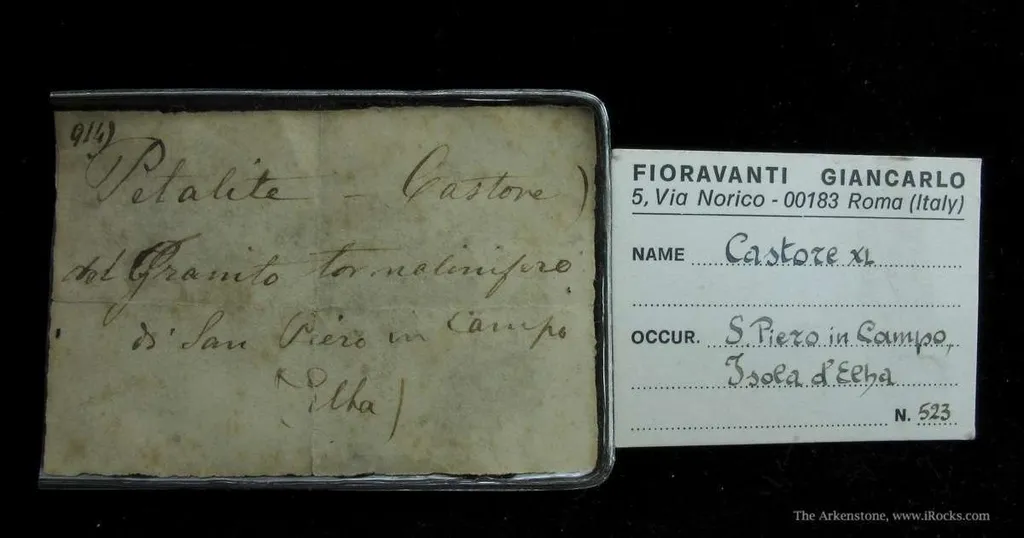 914)
Petalite - Castore)
del Granito tormalinifero
di San Piero in Campo
(Elba)
FIORAVANTI GIANCARLO
5, Via Norico - 00183 Roma (Italy)
NAME Castore XL
OCCUR. S. Piero in Campo,
Isola d'Elba
N. 523
The Arkenstone, www.iRocks.com